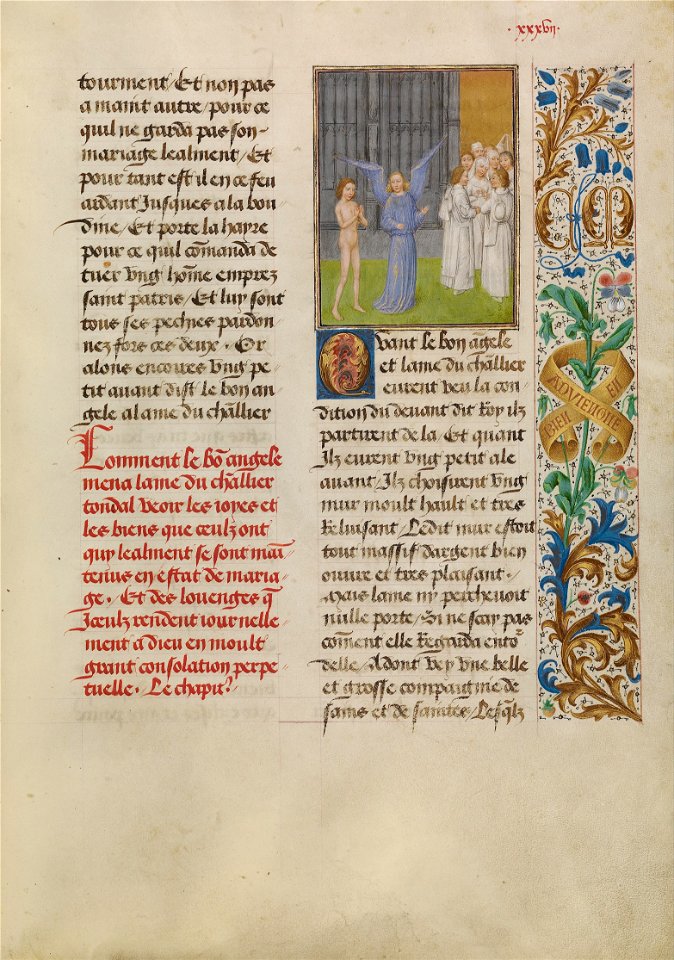 ·xxxvii·
tourment / Et non pas
a maint autre / pour ce
quil ne garda pas son
mariage lealment / Et
pour tant est il en ce feu
ardant Jusques a la bou
dine / Et porte la hayre
pour ce quil com̄anda de
tuer vng hom̄e emprez
saint patris / Et luy sont
tous ses pechies pardon
nez fors ces deux · Or
alons encores vng pe
tit auant dist le bon an
gele a lame du chl̄lier
Comment le bō angele
mena lame du chl̄lier
tondal veoir les ioyes et
les biens que ceulz ont
quy lealment se sont mai
tenus en estat de maria
ge · Et des louenges q̄
Jceulz rendent iournelle
ment a dieu en moult
grant consolation perpe
tuelle · Le chapit̾
Quant le bon an̄gele
et lame du chl̄lier
eurent veu la con
dition du deuant dit Roy ilz
partirent de la / Et quant
Ilz eurent vng petit ale
auant / Ilz choisirent vng
mur moult hault et tres
Reluisant / Ledit mur estoit
tout massif dargent bien
ouure et tres plaisant ·
Mais lame ny percheuoit
nulle porte / Si ne scay pas
com̄ent elle Regarda ento᷑
delle / Adont vey vne belle
et grosse compaignie de
sains et de saintes / Lesq̄lz
M
BIEN
ADVIENGNE